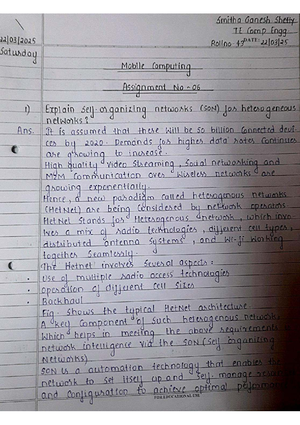 Smitha Ganesh Shetty
TE Comp Engg
22/03/2025
Roll no 43 DATE: 22/03/25
Saturday
Mobile Computing
Assignment No - 06
1) Explain self-organizing networks (SON) for heterogeneous
networks?
Ans. It is assumed that there will be 50 billion connected devi
ces by 2020. Demands for higher data rates continues
are growing to increase.
High quality video streaming, social networking and
M2M communication over wireless networks are
growing exponentially.
Hence, a new paradigm called heterogenous networks
(HetNet) are being considered by network operators
HetNet stands for Heterogenous Network, which invo
lves a mix of radio technologies, different cell types,
distributed antenna systems, and Wi-Fi working
together seamlessly.
• The Hetnet involves several aspects:
• Use of multiple radio access technologies
• operation of different cell sizes
• Backhaul
Fig. shows the typical HetNet architecture
A key component of such heterogenous network
Which helps in meeting the above requirements
network intelligence via the SON (Self organizing
Networks)
SON is a automation technology that enables the
network to set itself up and self-manage
and configuration to achieve optimal